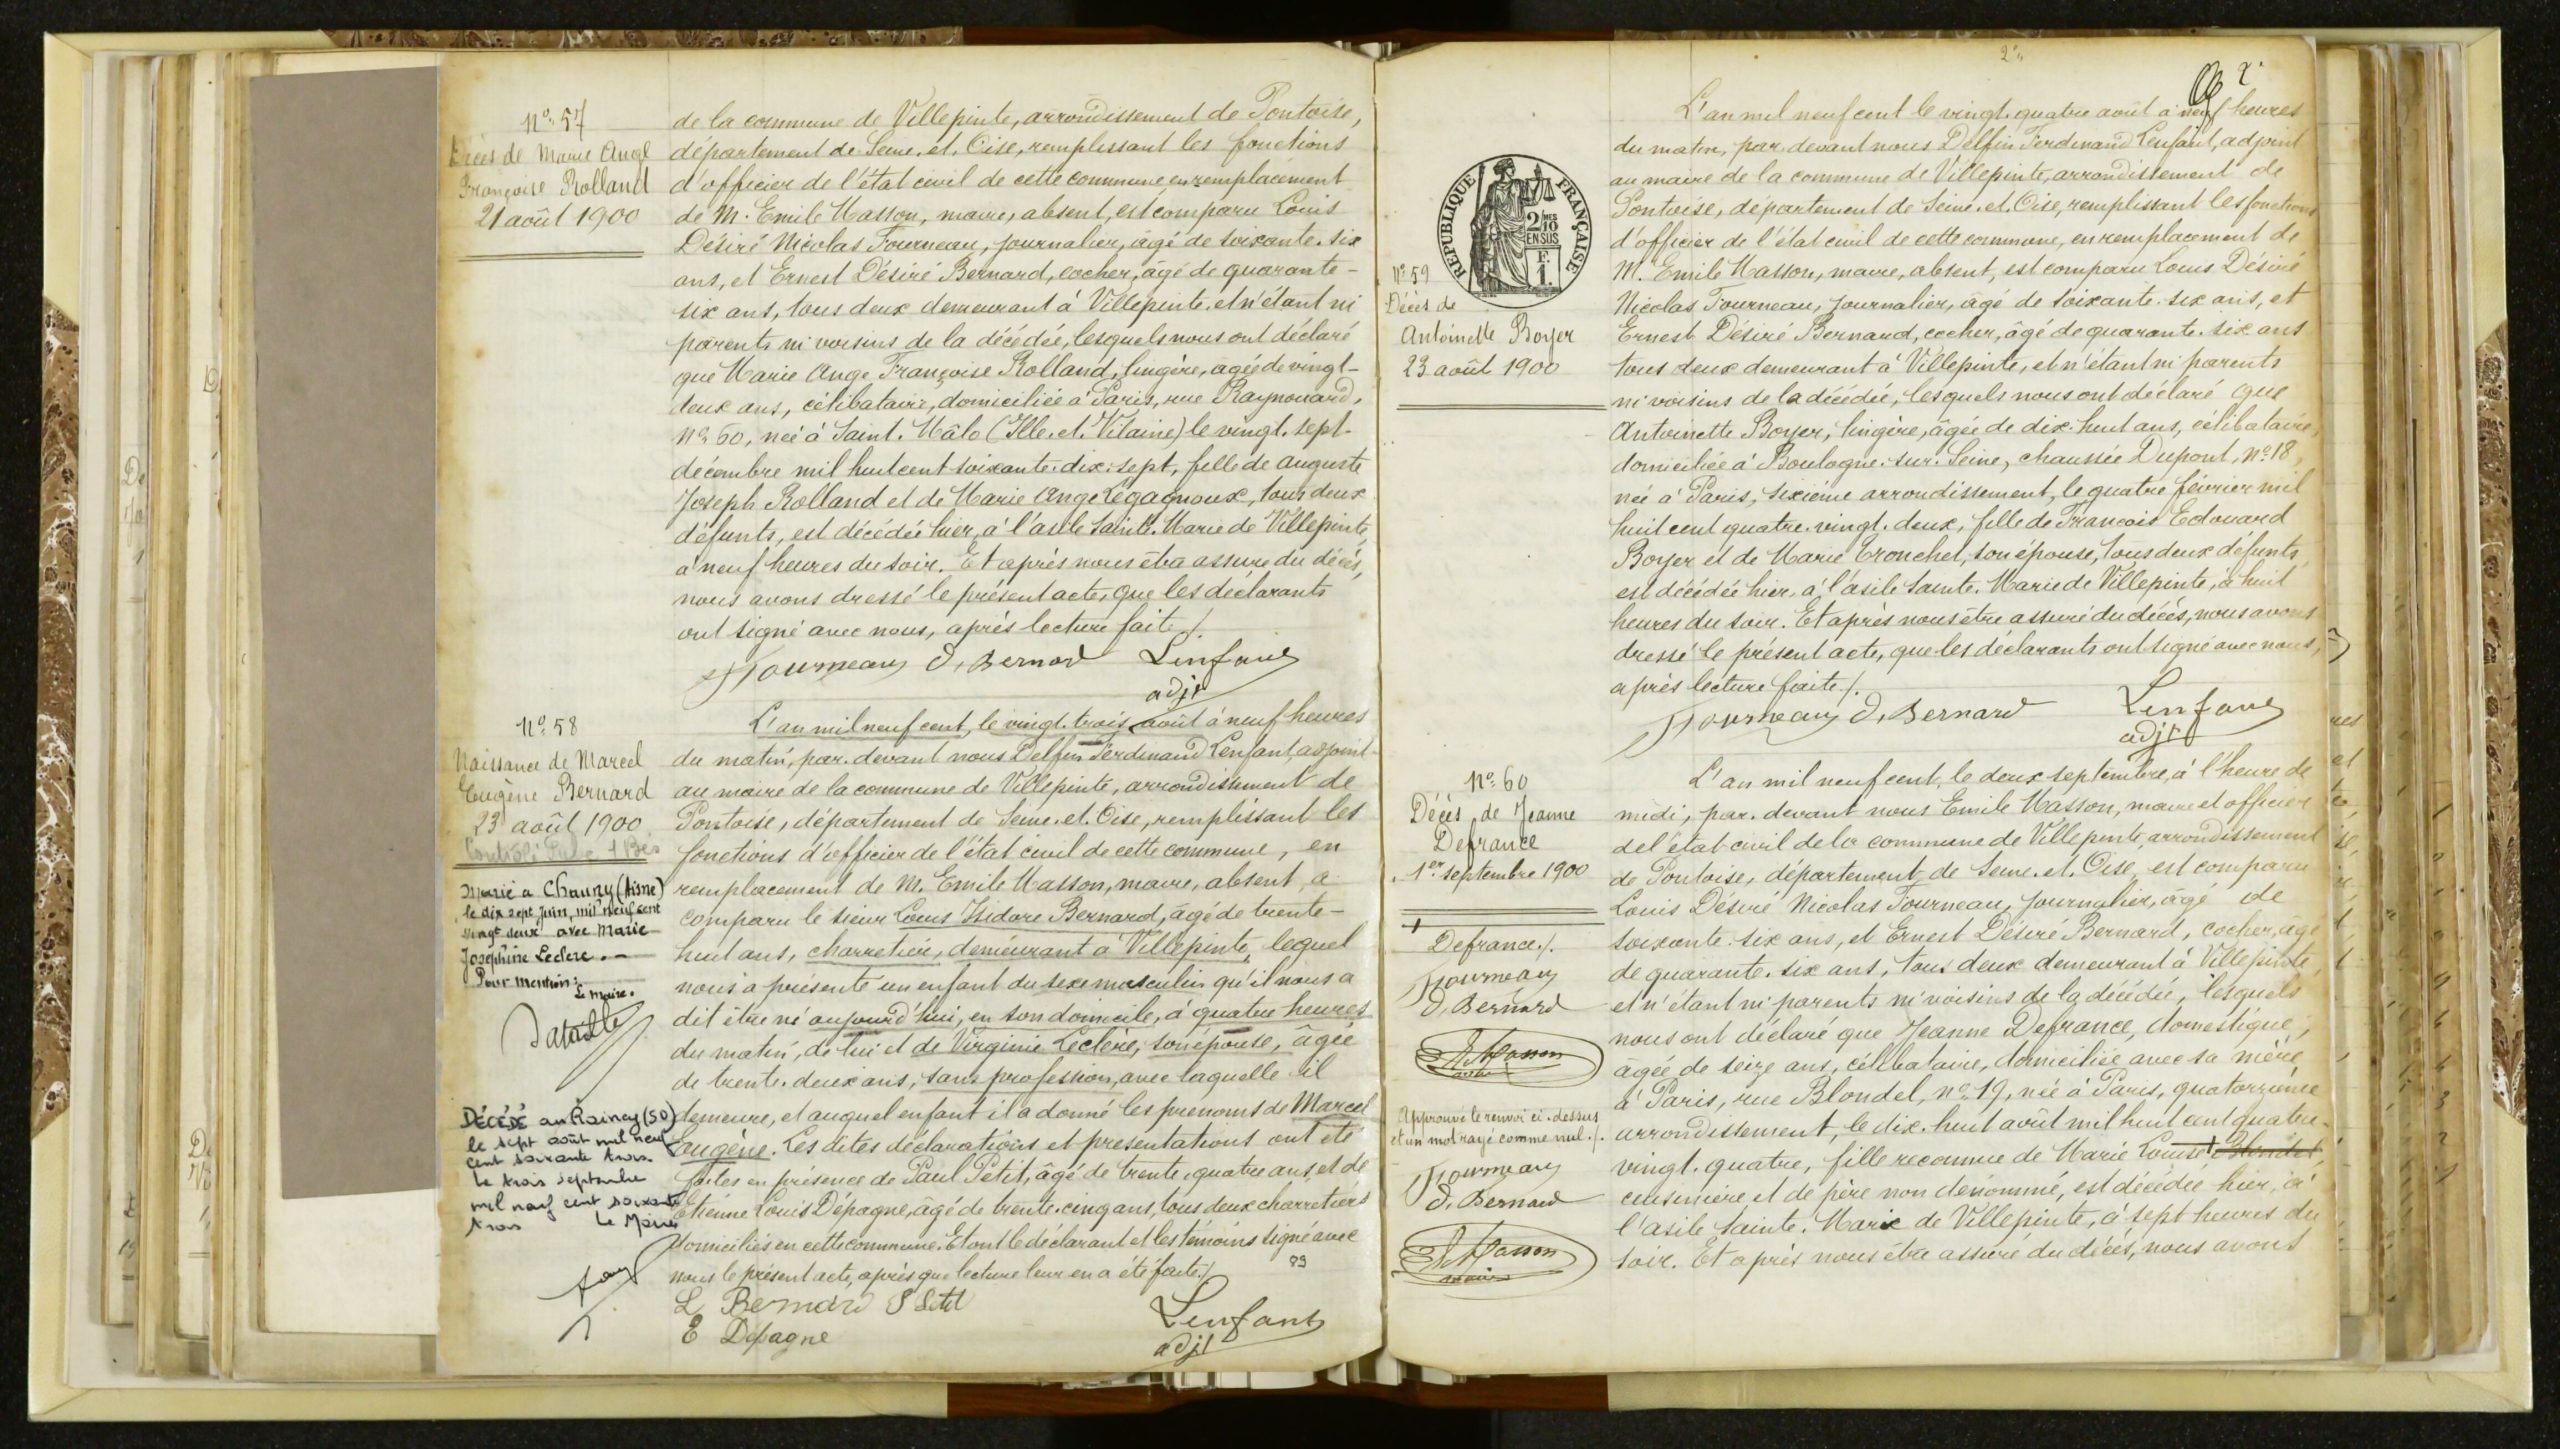 N° 57
Décès de Marie Ange
Françoise Rolland
21 août 1900
de la commune de Villepinte, arrondissement de Pontoise,
département de Seine-et-Oise, remplissant les fonctions
d'officier de l'état civil de cette commune en remplacement
de M. Emile Masson, maire, absent, est comparu Louis
Désiré Nicolas Fourneau, journalier, âgé de soixante-six
ans, et Ernest Désiré Bernard, cocher, âgé de quarante-
six ans, tous deux demeurant à Villepinte, et n'étant ni
parents ni voisins de la décédée, lesquels nous ont déclaré
que Marie Ange Françoise Rolland, lingère, âgée de vingt-
deux ans, célibataire, domiciliée à Paris, rue Raynouard,
N° 60, née à Saint-Mâlo (Ille-et-Vilaine) le vingt-sept
décembre mil huit cent soixante-dix-sept, fille de Auguste
Joseph Rolland et de Marie Ange Légagnoux, tous deux
défunts, est décédée hier, à l'asile Sainte-Marie de Villepinte,
à neuf heures du soir. Et après nous être assuré du décès,
nous avons dressé le présent acte, que les déclarants
ont signé avec nous, après lecture faite ./.
Fourneau D, Bernard Lenfant
adjt
N° 58
Naissance de Marcel
Eugène Bernard
23 août 1900
Marié à Chauny (Aisne)
le dix sept Juin, mil neuf cent
vingt deux avec Marie
Joséphine Leclere. —
Pour mention:
Le maire.
DÉCÉDÉ au Raincy (SO)
le sept août mil neuf
cent soixante trois.
le trois septembre
mil neuf cent soixante
trois Le Maire
L'an mil neuf cent, le vingt-trois août à neuf heures
du matin, par-devant nous Delfin Ferdinand Lenfant, adjoint
au maire de la commune de Villepinte, arrondissement de
Pontoise, département de Seine-et-Oise, remplissant les
fonctions d'officier de l'état civil de cette commune, en
remplacement de M. Emile Masson, maire, absent, a
comparu le sieur Louis Isidore Bernard, âgé de trente-
huit ans, charretier, demeurant à Villepinte, lequel
nous a présenté un enfant du sexe masculin qu'il nous a
dit être né aujourd'hui, en son domicile, à quatre heures
du matin, de lui et de Virginie Leclère, son épouse, âgée
de trente-deux ans, sans profession, avec laquelle il
demeure, et auquel enfant il a donné les prénoms de Marcel
Eugène. Les dites déclarations et présentations ont été
faites en présence de Paul Petit, âgé de trente-quatre ans, et de
Etienne Louis Dépagne, âgé de trente-cinq ans, tous deux charretiers
domiciliés en cette commune. Et ont le déclarant et les témoins signé avec
nous le présent acte, après que lecture leur en a été faite ./.
L Bernard P Petit
E Dépagne
Lenfant
adjt
2
RÉPUBLIQUE FRANÇAISE
2/10
EN SUS
F.
1.
N° 59
Décès de
Antoinette Boyer
23 août 1900
L'an mil neuf cent le vingt-quatre août à neuf heures
du matin, par-devant nous Delfin Ferdinand Lenfant, adjoint
au maire de la commune de Villepinte, arrondissement de
Pontoise, département de Seine-et-Oise, remplissant les fonctions
d'officier de l'état civil de cette commune, en remplacement de
M. Emile Masson, maire, absent, est comparu Louis Désiré
Nicolas Fourneau, journalier, âgé de soixante-six ans, et
Ernest Désiré Bernard, cocher, âgé de quarante-six ans
tous deux demeurant à Villepinte, et n'étant ni parents
ni voisins de la décédée, lesquels nous ont déclaré que
Antoinette Boyer, lingère, âgée de dix-huit ans, célibataire,
domiciliée à Boulogne-sur-Seine, chaussée Dupont, N° 18,
née à Paris, sixième arrondissement, le quatre février mil
huit cent quatre-vingt-deux, fille de François Edouard
Boyer et de Marie Cronchet, son épouse, tous deux défunts
est décédée hier, à l'asile Sainte-Marie de Villepinte, à huit
heures du soir. Et après nous être assuré du décès, nous avons
dressé le présent acte, que les déclarants ont signé avec nous,
après lecture faite ./.
Fourneau D, Bernard Lenfant
adjt
N° 60
Décès de Jeanne
Defrance
1er septembre 1900
Defrance ./.
Fourneau
D, Bernard
E Masson
Approuvé le renvoi ci-dessus
et un mot rayé comme nul ./.
Fourneau
D. Bernard
E Masson
maire
L'an mil neuf cent, le deux septembre, à l'heure de
midi, par-devant nous Emile Masson, maire et officier
de l'état-civil de la commune de Villepinte, arrondissement
de Pontoise, département de Seine-et-Oise, est comparu
Louis Désiré Nicolas Fourneau, journalier, âgé de
soixante-six ans, et Ernest Désiré Bernard, cocher, âgé
de quarante-six ans, tous deux demeurant à Villepinte
et n'étant ni parents ni voisins de la décédée, lesquels
nous ont déclaré que Jeanne Defrance, domestique,
âgée de seize ans, célibataire, domiciliée avec sa mère
à Paris, rue Blondel, n° 19, née à Paris, quatorzième
arrondissement, le dix-huit août mil huit cent quatre-
vingt-quatre, fille reconnue de Marie Louise Blondel,
cuisinière et de père non dénommé, est décédée hier, à
l'asile Sainte-Marie de Villepinte, à sept heures du
soir. Et après nous être assuré du décès, nous avons